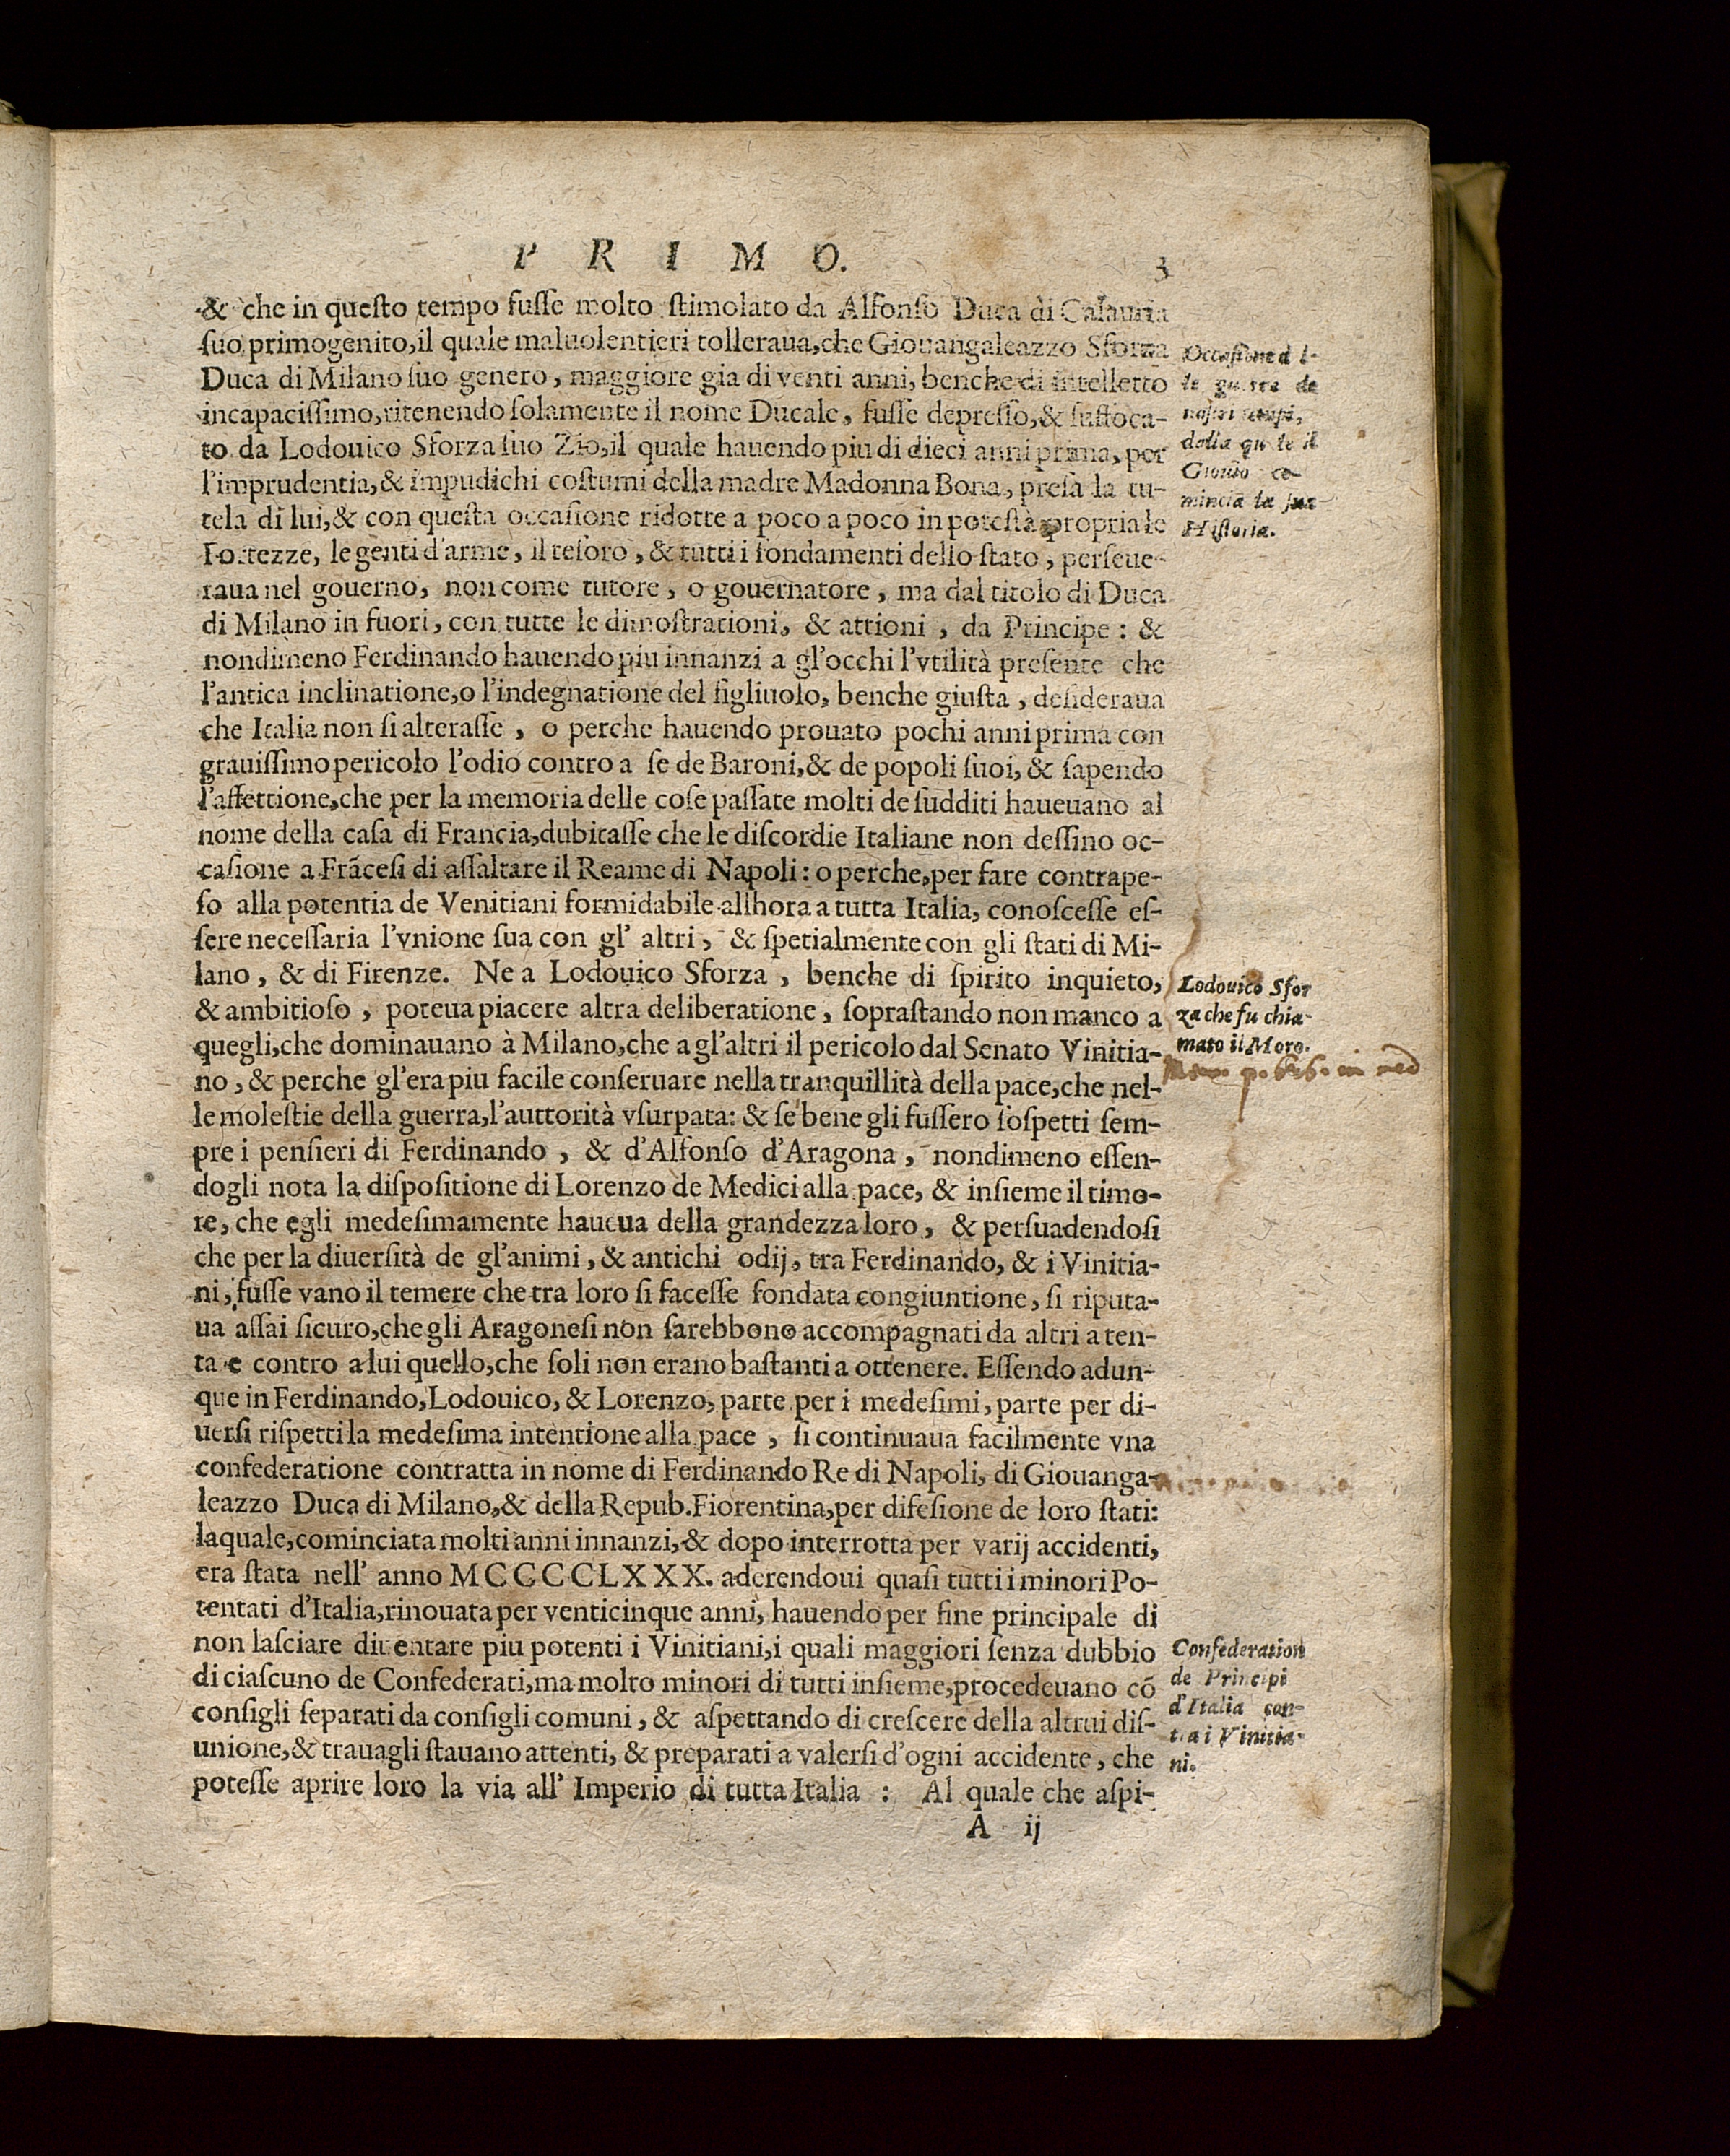 PRIMO. 3
& che in questo tempo fusse molto stimolato da Alfonso Duca di Calauria
suo primogenito, il quale maluolentieri tolleraua, che Giouangaleazzo Sforza
Duca di Milano suo genero, maggiore gia di venti anni, benche di intelletto
incapacissimo, ritenendo solamente il nome Ducale, fusse depresso, & suffoca-
to da Lodouico Sforza suo Zio, il quale hauendo piu di dieci anni prima, per
l'imprudentia, & impudichi costumi della madre Madonna Bona, presa la tu-
tela di lui, & con questa occasione ridotte a poco a poco in potestà propria le
Fortezze, le genti d'arme, il tesoro, & tutti i fondamenti dello stato, perseue-
raua nel gouerno, non come tutore, o gouernatore, ma dal titolo di Duca
di Milano in fuori, con tutte le dimostrationi, & attioni, da Principe: &
nondimeno Ferdinando hauendo piu innanzi a gl'occhi l'vtilità presente che
l'antica inclinatione, o l'indegnatione del figliuolo, benche giusta, desideraua
che Italia non si alterasse, o perche hauendo prouato pochi anni prima con
grauissimo pericolo l'odio contro a se de Baroni, & de popoli suoi, & sapendo
l'affettione, che per la memoria delle cose passate molti de sudditi haueuano al
nome della casa di Francia, dubitasse che le discordie Italiane non dessino oc-
casione a Frãcesi di assaltare il Reame di Napoli: o perche, per fare contrape-
so alla potentia de Venitiani formidabile allhora a tutta Italia, conoscesse es-
sere necessaria l'vnione sua con gl' altri, & spetialmente con gli stati di Mi-
lano, & di Firenze. Ne a Lodouico Sforza, benche di spirito inquieto,
& ambitioso, poteua piacere altra deliberatione, soprastando non manco a
quegli, che dominauano à Milano, che a gl'altri il pericolo dal Senato Vinitia-
no, & perche gl'era piu facile conseruare nella tranquillità della pace, che nel-
le molestie della guerra, l'auttorità vsurpata: & se bene gli fussero sospetti sem-
pre i pensieri di Ferdinando, & d'Alfonso d'Aragona, nondimeno essen-
dogli nota la dispositione di Lorenzo de Medici alla pace, & insieme il timo-
re, che egli medesimamente haueua della grandezza loro, & persuadendosi
che per la diuersità de gl'animi, & antichi odij, tra Ferdinando, & i Vinitia-
ni, fusse vano il temere che tra loro si facesse fondata congiuntione, si riputa-
ua assai sicuro, che gli Aragonesi non sarebbono accompagnati da altri a ten-
ta e contro a lui quello, che soli non erano bastanti a ottenere. Essendo adun-
que in Ferdinando, Lodouico, & Lorenzo, parte per i medesimi, parte per di-
uersi rispetti la medesima intentione alla pace, si continuaua facilmente vna
confederatione contratta in nome di Ferdinando Re di Napoli, di Giouanga-
leazzo Duca di Milano, & della Repub. Fiorentina, per difesione de loro stati:
laquale, cominciata molti anni innanzi, & dopo interrotta per varij accidenti,
era stata nell' anno MCCCCLXXX. aderendoui quasi tutti i minori Po-
tentati d'Italia, rinouata per venticinque anni, hauendo per fine principale di
non lasciare diuentare piu potenti i Vinitiani, i quali maggiori senza dubbio
di ciascuno de Confederati, ma molto minori di tutti insieme, procedeuano cõ
consigli separati da consigli comuni, & aspettando di crescere della altrui dis-
unione, & trauagli stauano attenti, & preparati a valersi d'ogni accidente, che
potesse aprire loro la via all' Imperio di tutta Italia : Al quale che aspi-
A ij
Occasione
de
nostri tempi,
dalla il
co-
mincia la sua
Historia.
Lodouico Sfor
za che fu chia-
mato il Moro.
Confederation
de Principi
d'Italia con-
t a i Vinitia-
ni.